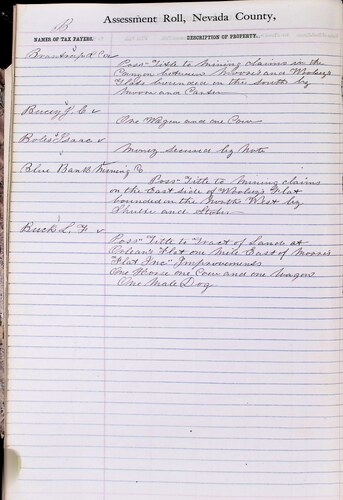 B
Assessment Roll, Nevada County,
NAMES OF TAX PAYERS.
DESCRIPTION OF PROPERTY.
Poss" Title to Mining claims in the
Canyon between Moores and Woolsey's
Flats bounded on the South by
Moore and Carter
J. E
One Wagon and one Cow
Boles Isaac
Money secured by Note
Blue Bank Mining C
Poss" Title to Mining claims
on the East side of Woolsey's Flat
bounded on the North West by
and
Buck L. F
Poss" Title to Tract of Land at
Orleans Flat one Mile East of Moores
Flat Inc" Improvements
One Horse one Cow and one Wagon
One Male Dog